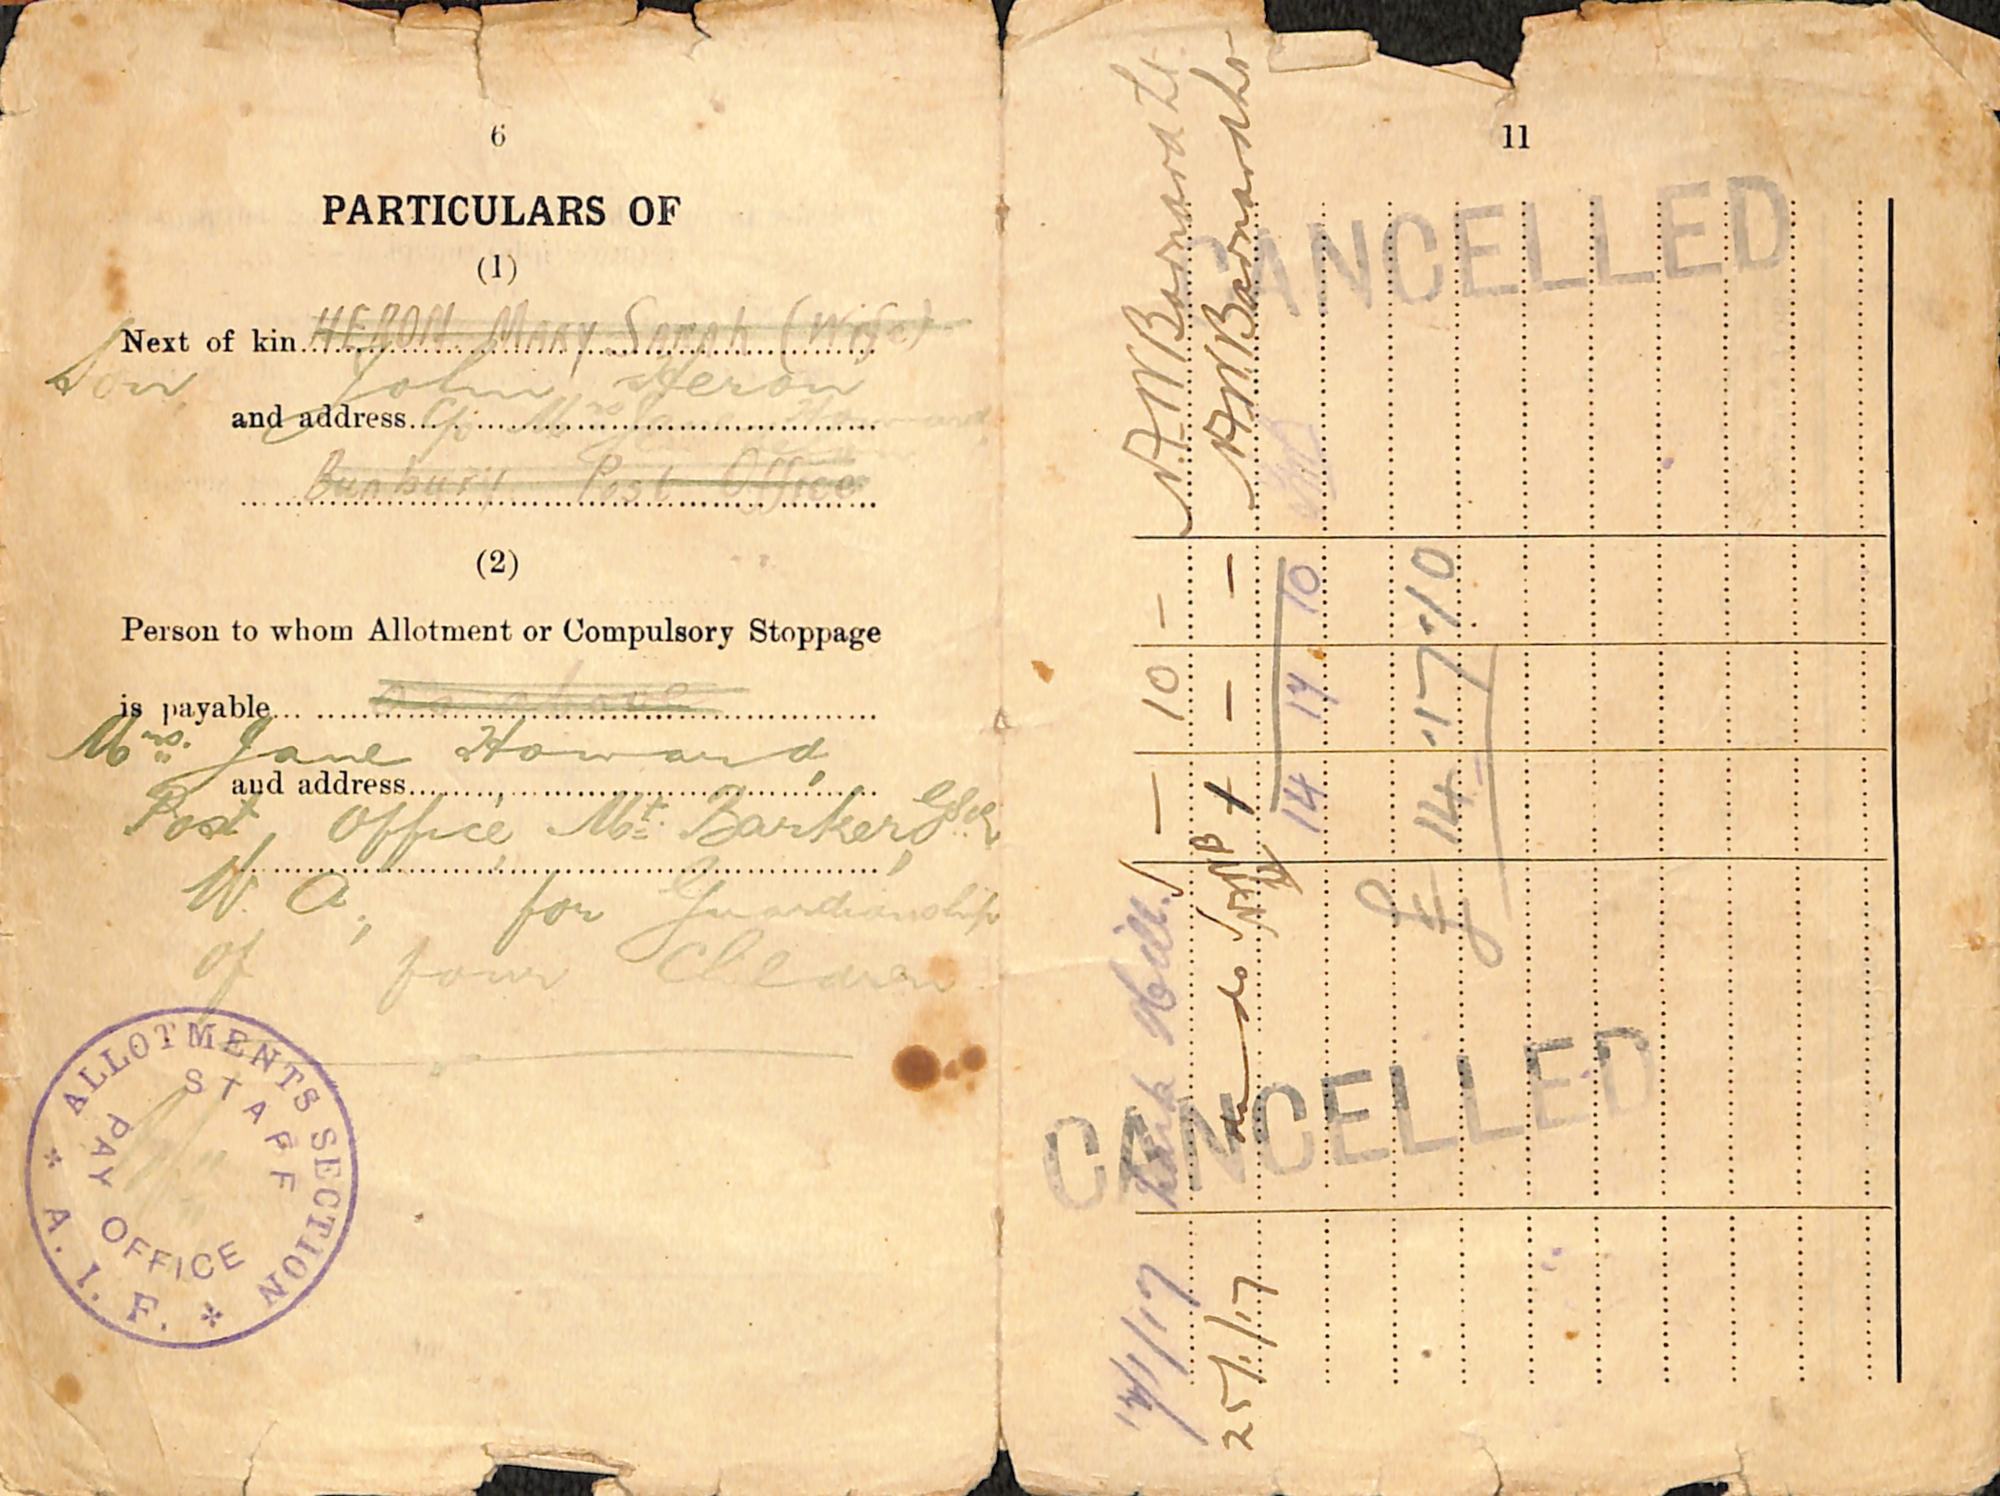 6
PARTICULARS OF
(1)
Next of kin HERON Mary Sarah (Wife)
Son John Heron
and address c/o Mrs Jane Howard
Bunbury Post Office
(2)
Person to whom Allotment or Compulsory Stoppage
is payable as above
Mrs. Jane Howard,
and address
Post Office, Mt. Barker,
W. A., for Guardianship
of four Children
ALLOTMENTS SECTION
STAFF
PAY OFFICE
* A. I. F. *
11
CANCELLED
CANCELLED
/1/17 Lark Hill. — 10 — A M Barnard Lt.
25/1/17 do 1 — — A M Barnard Lt
14 17 10
£ 14.17.10